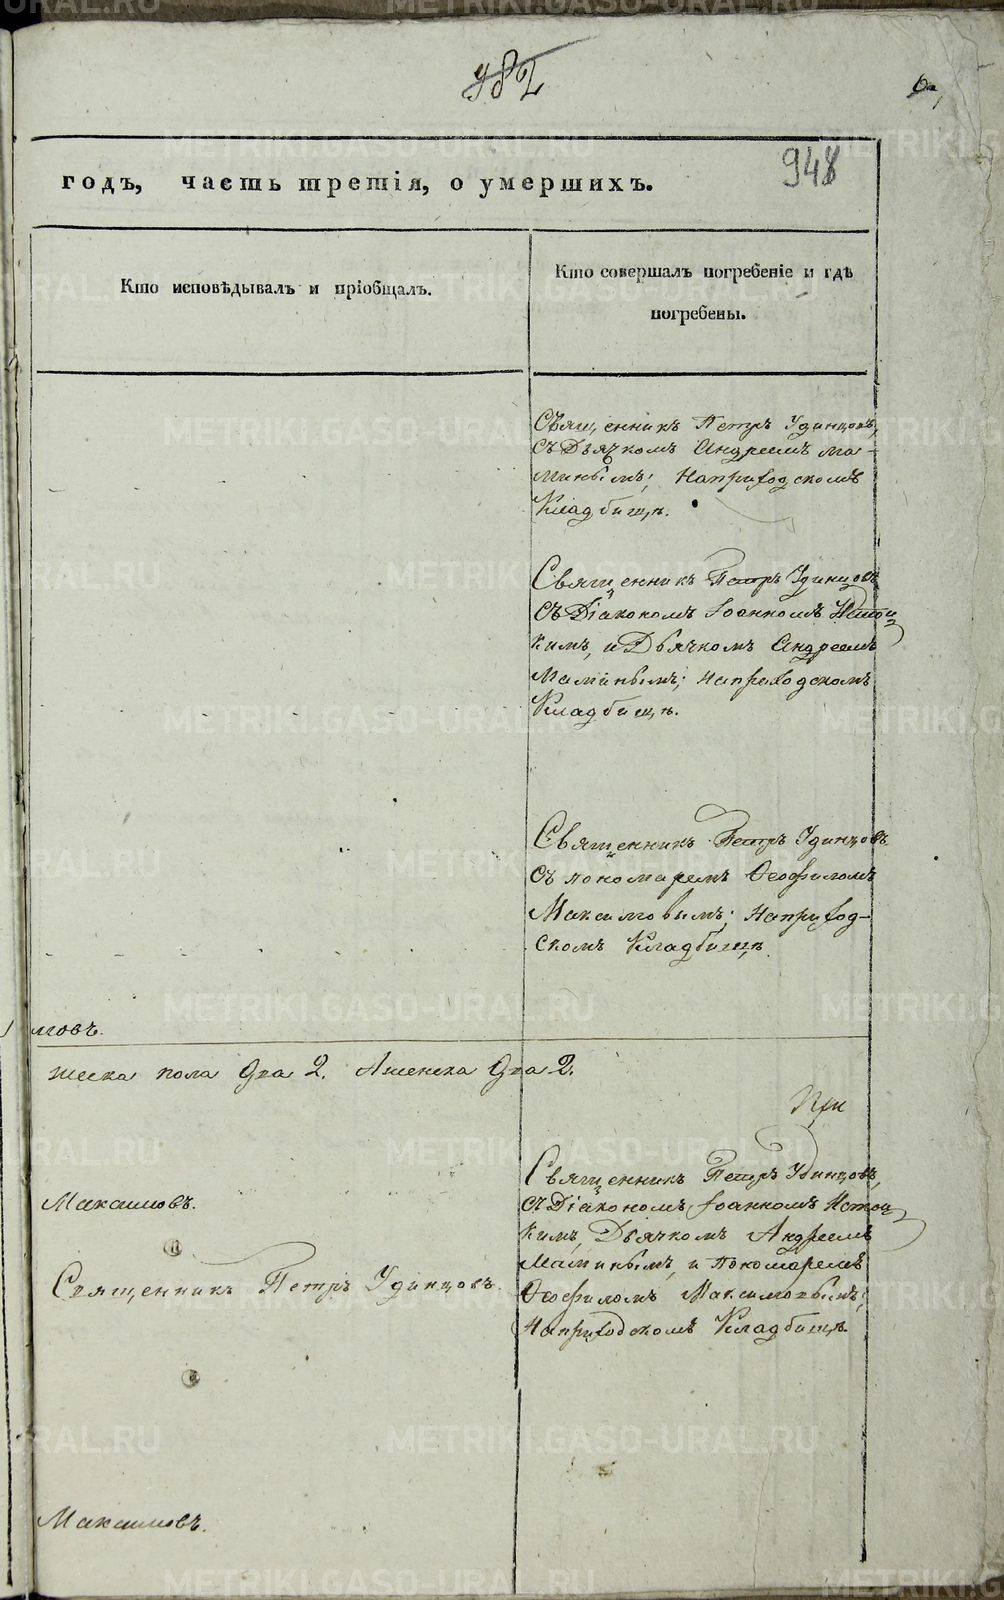 982
948
годъ, часть третія, о умершихъ.
Кто исповѣдывалъ и пріобщалъ.
Кто совершалъ погребеніе и гдѣ
погребены.
Священникъ Петръ Удинцовъ,
съ Дьячкомъ Андреемъ Ма-
минымъ; на приходскомъ
Кладбищѣ.
Священникъ Петръ Удинцовъ
съ Діакономъ Іоанномъ
кимъ, и Дьячкомъ Андреемъ
Маминымъ; на приходскомъ
Кладбищѣ.
Священникъ Петръ Удинцовъ
съ пономаремъ Ѳеофиломъ
Максимовымъ; на приход-
скомъ Кладбищѣ.
мовъ.
жеска пола два 2. А женска два 2.
При
Священникъ Петръ Удинцовъ,
съ Діакономъ Іоанномъ
кимъ, Дьячкомъ Андреемъ
Маминымъ, и Пономаремъ
Ѳеофиломъ Максимовымъ;
на приходскомъ Кладбищѣ.
Максимовъ.
Священникъ Петръ Удинцовъ.
Максимовъ.
METRIKI.GASO-URAL.RU